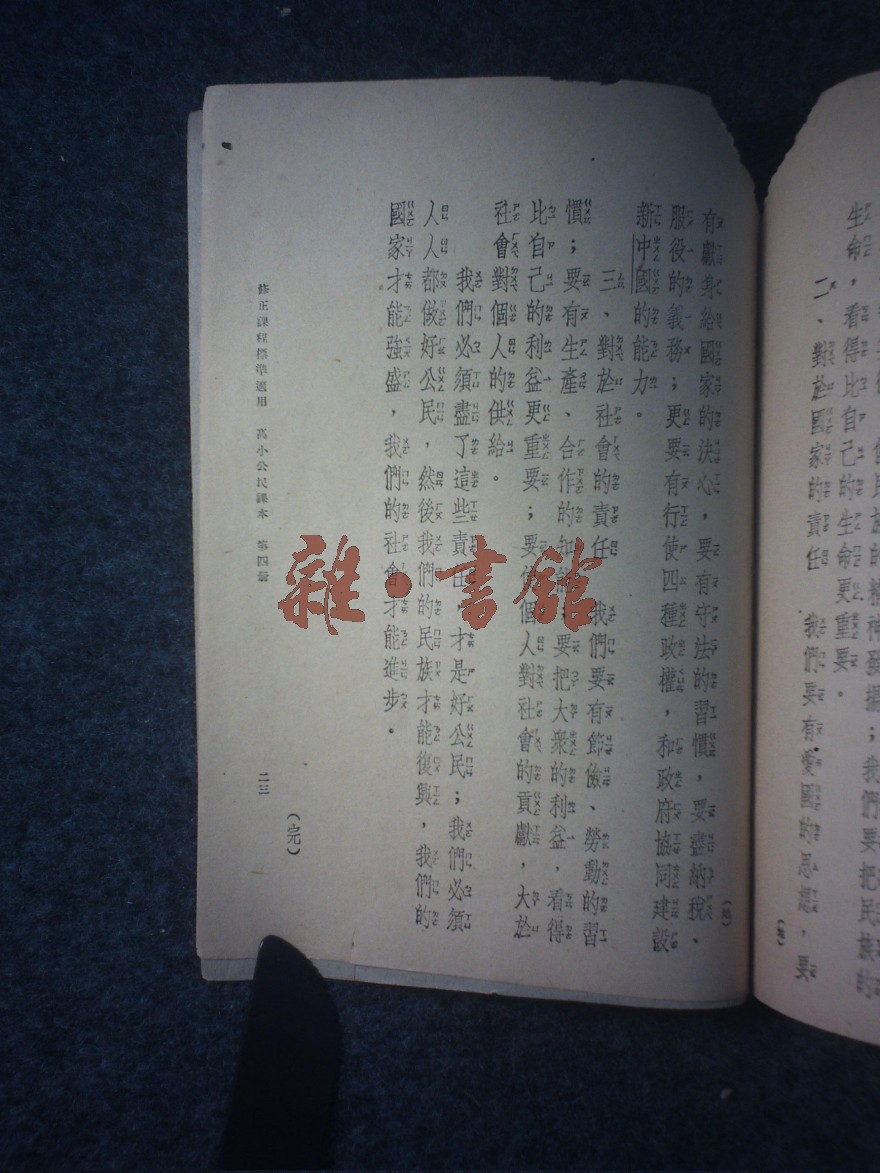 民族的精神發揚；我們要把民族的
生命，看得比自己的生命更重要。
二、對於國家的責任　我們要有愛國的思想，要
有獻身給國家的決心，要有守法的習慣，要盡納稅、
服役的義務；更要有行使四種政權，和政府協同建設
新中國的能力。
三、對於社會的責任　我們要有節儉、勞動的習
慣；要有生產、合作的知能；要把大衆的利益，看得
比自己的利益更重要；要使個人對社會的貢獻，大於
社會對個人的供給。
我們必須盡了這些責任，才是好公民；我們必須
人人都做好公民，然後我們的民族才能復興，我們的
國家才能強盛，我們的社會才能進步。
（完）
修正課程標準適用　高小公民課本　第四冊　二三
雜·書館